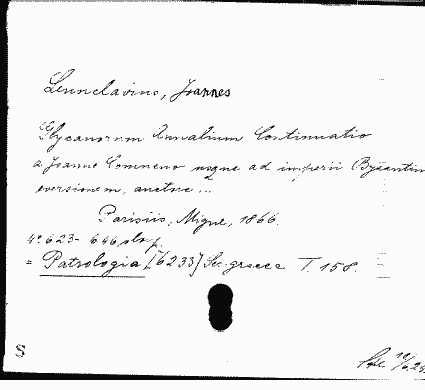 Leunclavius, Joannes
Glycanorum Annalium Continuatio
a Joanne Comneno usque ad imperii Byzantin
eversionem, auctore ...
Parisiis, Migne, 1866.
4º 623-646 slp.
= Patrologia [6233] Ser. graeca T. 158.
S